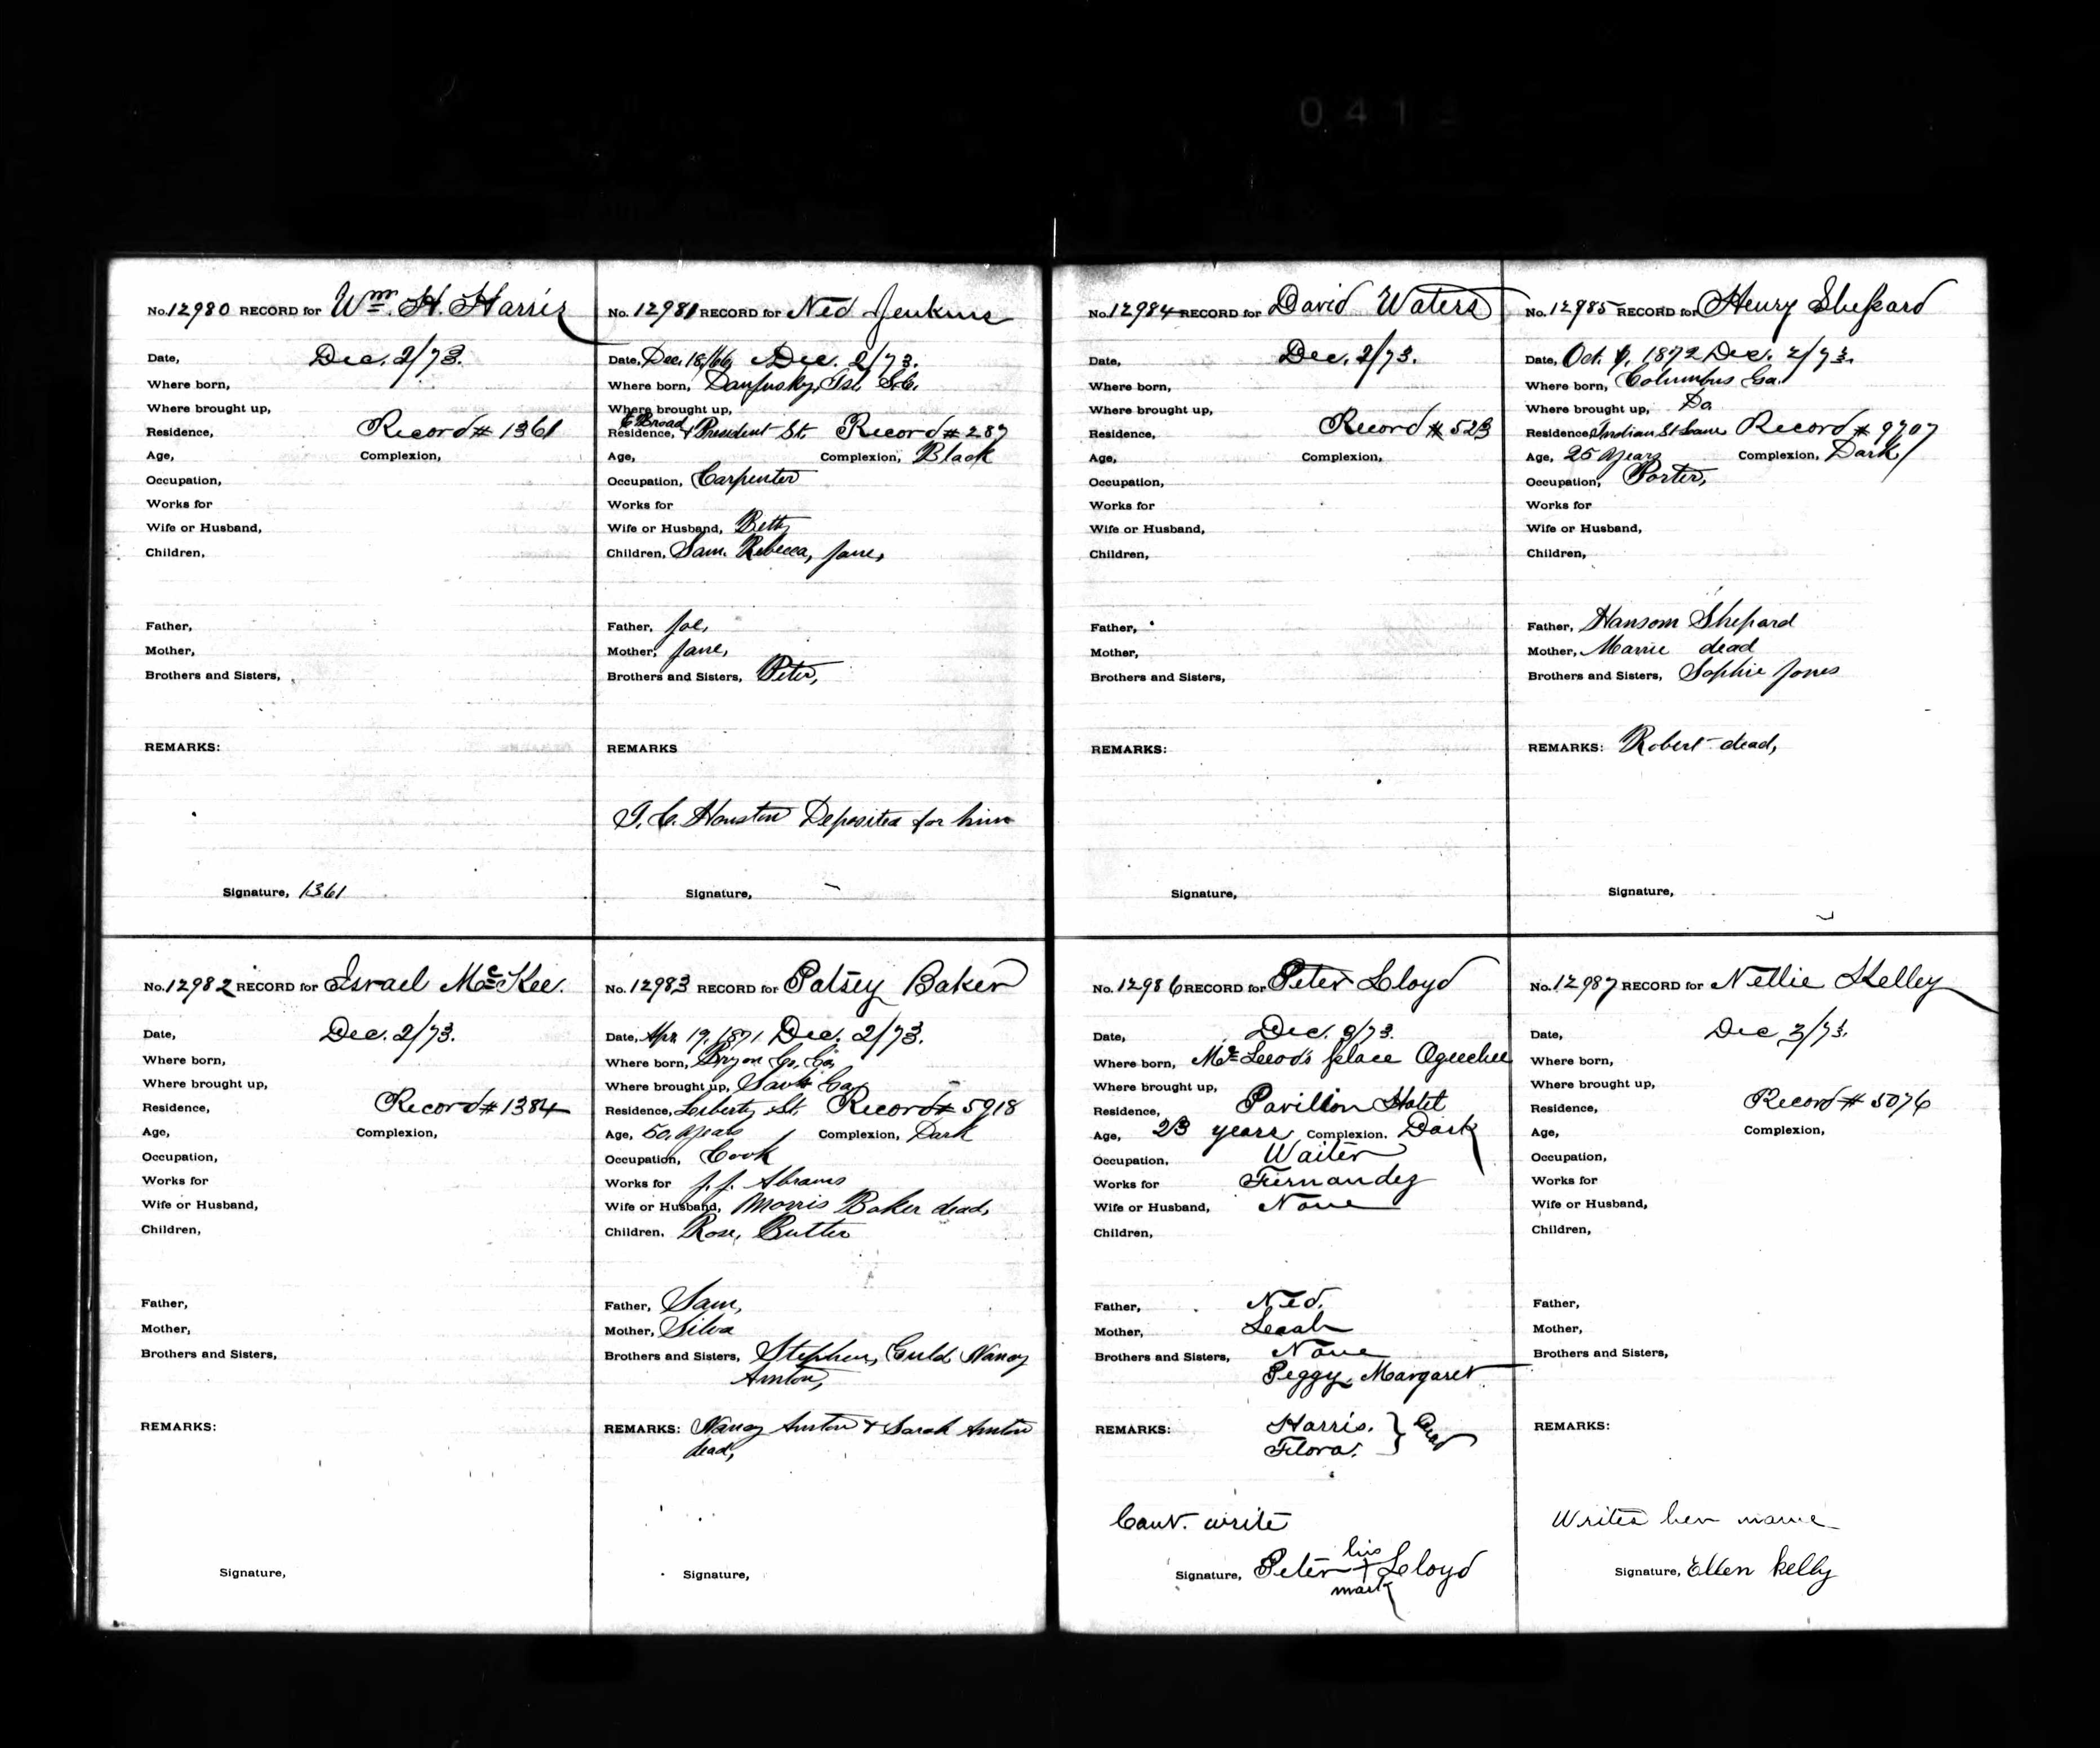 041
No. 12980 RECORD for Wm. H. Harris
Date, Dec. 2/73.
Where born,
Where brought up,
Residence, Record # 1361
Age, Complexion,
Occupation,
Works for
Wife or Husband,
Children,
Father,
Mother,
Brothers and Sisters,
REMARKS:
Signature, 1361
No. 12981 RECORD for Ned Jenkins
Date, Dec. 18/66, Dec. 2/73.
Where born, Daufusky, Isl. S.C.
Where brought up,
E Broad
Residence, & President St. Record # 287
Age, Complexion, Black
Occupation, Carpenter
Works for
Wife or Husband, Betty
Children, Sam. Rebecca, Jane,
Father, Joe,
Mother, Jane,
Brothers and Sisters, Peter,
REMARKS
Houston Deposited for him
Signature,
No. 12982 RECORD for Israel McKee.
Date, Dec. 2/73.
Where born,
Where brought up,
Residence, Record # 1384
Age, Complexion,
Occupation,
Works for
Wife or Husband,
Children,
Father,
Mother,
Brothers and Sisters,
REMARKS:
Signature,
No. 12983 RECORD for Patsey Baker
Date, Apr. 19, 1871 Dec. 2/73.
Where born, Bryan Co. Ga,
Where brought up, Savh Ga
Residence, Liberty St. Record # 5918
Age, 50 years Complexion, Dark
Occupation, Cook
Works for J. J. Abrams
Wife or Husband, Morris Baker dead,
Children. Rose, Butler
Father, Sam,
Mother, Silva
Brothers and Sisters, Stephen, Nancy
REMARKS: Nancy & Sarah
dead,
Signature,
No. 12984 RECORD for David Waters
Date, Dec. 2/73.
Where born,
Where brought up,
Residence, Record # 523
Age, Complexion,
Occupation,
Works for
Wife or Husband,
Children,
Father,
Mother,
Brothers and Sisters,
REMARKS:
Signature,
No. 12985 RECORD for Henry Shepard
Date, Oct. 1872 Dec. 2/73.
Where born, Columbus Ga.
Where brought up, Do
Residence, Indian St Lane Record # 9707
Age, 25 years Complexion, Dark
Occupation, Porter,
Works for
Wife or Husband,
Children,
Father, Hansom Shepard
Mother, Marie dead
Brothers and Sisters, Sophie Jones
REMARKS: Robert dead,
Signature,
No. 12986 RECORD for Peter Lloyd
Date, Dec. 3/73.
Where born, McLeod's place Ogeechee
Where brought up,
Residence, Pavillion Hotel
Age, 23 years Complexion. Dark
Occupation, Waiter
Works for Fernandez
Wife or Husband, None
Children,
Father, Ned.
Mother, Leah
Brothers and Sisters, None
Peggy, Margaret
REMARKS: Harris. } Dead
Flora.
Cant. write
his
Signature, Peter + Lloyd
mark
No. 12987 RECORD for Nellie Kelley
Date, Dec 3/73.
Where born,
Where brought up,
Residence, Record # 5076
Age, Complexion,
Occupation,
Works for
Wife or Husband,
Children,
Father,
Mother,
Brothers and Sisters,
REMARKS:
Writes her name
Signature, Ellen Kelly